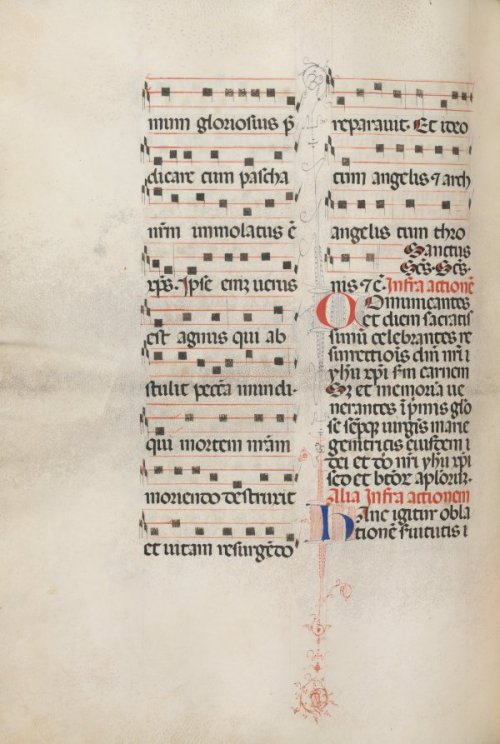 mum gloriosius p̄
dicare cum pascha
nr̄m immolatus ē
xp̄s. Ipse enim uerus
est agnus qui ab
stulit pecc̄a mundi.
qui mortem nr̄am
moriendo destruxit
et uitam resurgēdo
reparauit. Et ideo
cum angelis ⁊ arch
angelis cum thro
Sanctus
Sc̄s. Sc̄s.
nis ⁊ c̄. Infra actionē
Omunicantes
et diem sacratis
simū celebrantes re
surrectiōis dn̄i nr̄i
yhu xp̄i scd̄m carnem
Sꝫ et memoria ue
nerantes ī p̄mis glo
se semp̱ uirgīs marie
genitricis eiusdem
dei et dn̄i nr̄i yhu xp̄i
sed et beatoꝝ ap̄loꝝ.
Alia Infra actionem
Hanc igitur obla
tionē ſuitutis